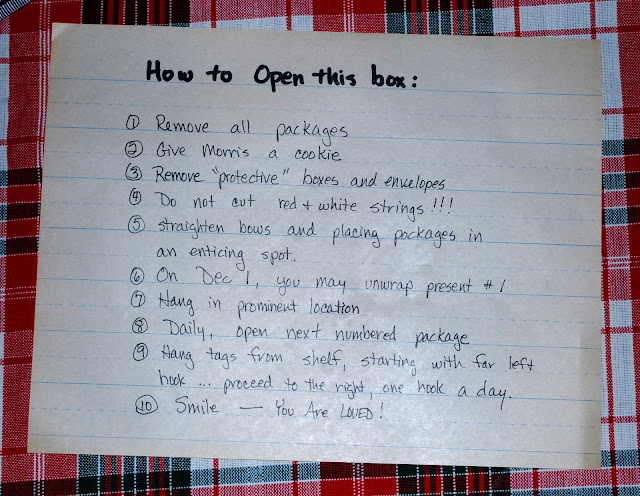 How to Open this box:
① Remove all packages
② Give Morris a cookie
③ Remove "protective" boxes and envelopes
④ Do not cut red + white strings!!!
⑤ straighten bows and placing packages in
an enticing spot.
⑥ On Dec 1, you may unwrap present #1
⑦ Hang in prominent location
⑧ Daily, open next numbered package
⑨ Hang tags from shelf, starting with far left
hook ... proceed to the right, one hook a day.
⑩ Smile — You Are LOVED!